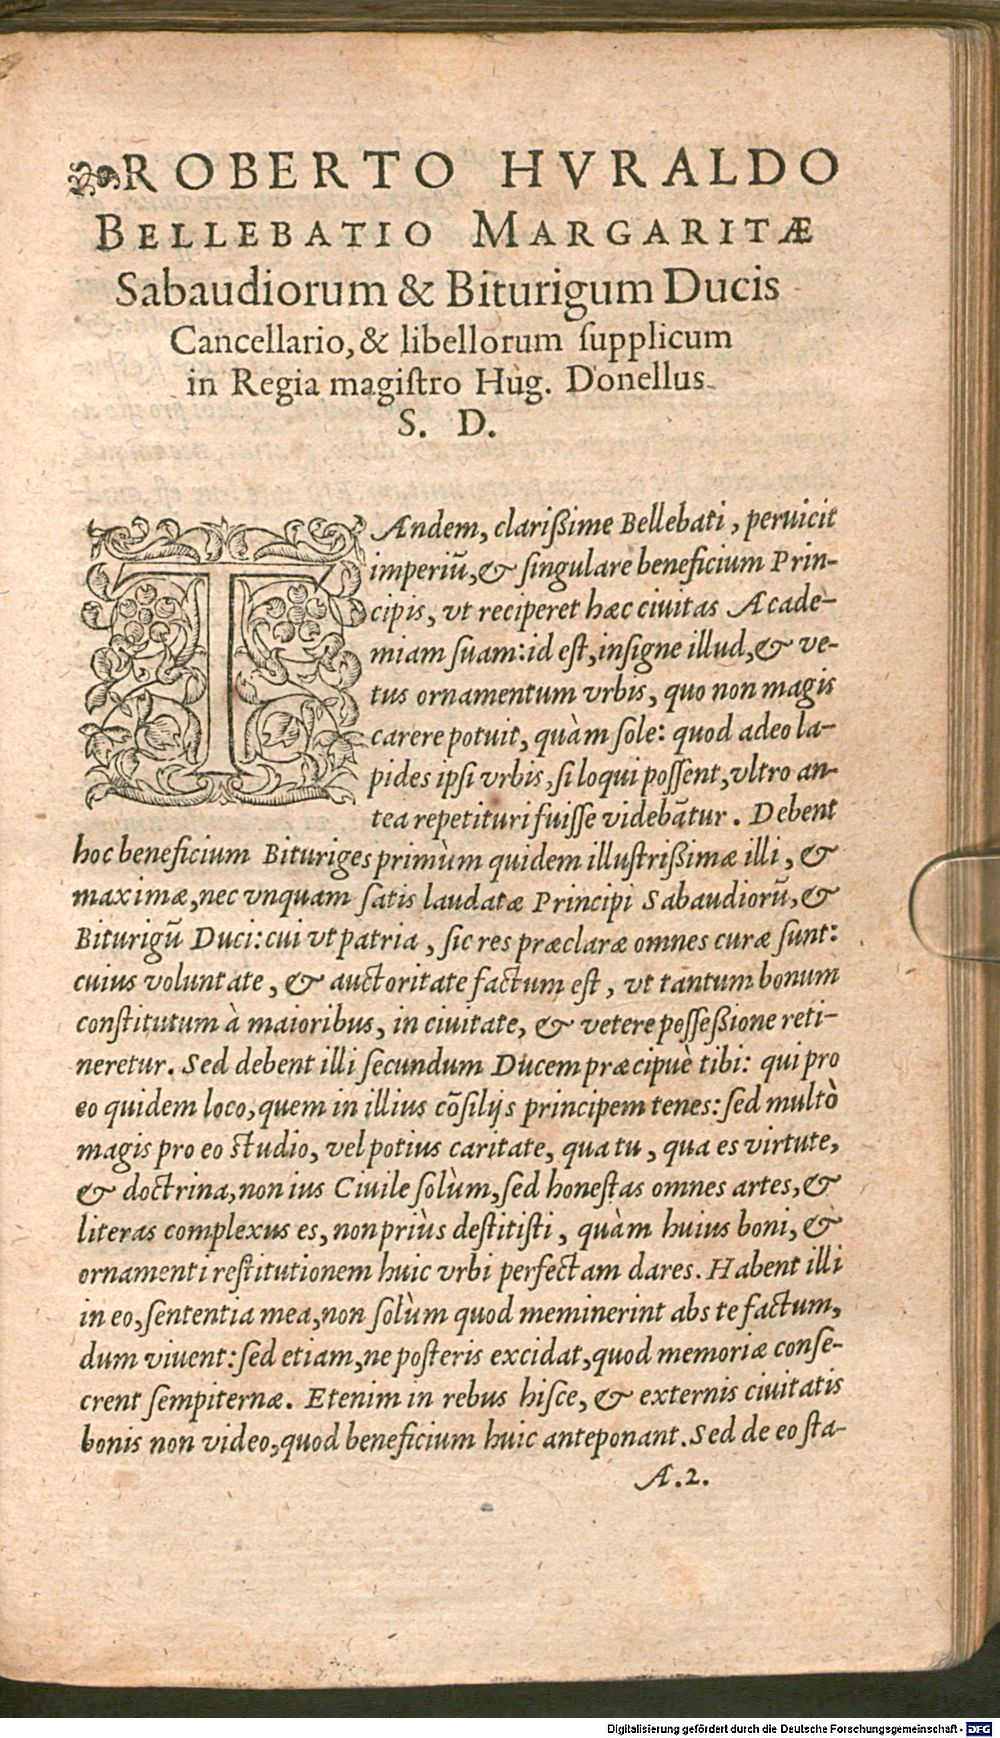 ROBERTO HVRALDO
BELLEBATIO MARGARITÆ
Sabaudiorum & Biturigum Ducis
Cancellario, & libellorum ſupplicum
in Regia magiſtro Hug. Donellus.
S. D.
TAndem, clariſsime Bellebati, peruicit
imperiū, & ſingulare beneficium Prin-
cipis, vt reciperet hæc ciuitas Acade-
miam ſuam: id eſt, inſigne illud, & ve-
tus ornamentum vrbis, quo non magis
carere potuit, quàm ſole: quod adeo la-
pides ipſi vrbis, ſi loqui poſſent, vltro an-
tea repetituri fuiſſe videbātur. Debent
hoc beneficium Bituriges primùm quidem illuſtriſsimæ illi, &
maximæ, nec vnquam ſatis laudatæ Principi Sabaudiorū, &
Biturigū Duci: cui vt patria, ſic res præclaræ omnes curæ ſunt:
cuius voluntate, & auctoritate factum eſt, vt tantum bonum
conſtitutum à maioribus, in ciuitate, & vetere poſſeſsione reti-
neretur. Sed debent illi ſecundum Ducem præcipuè tibi: qui pro
eo quidem loco, quem in illius cōſilijs principem tenes: ſed multò
magis pro eo ſtudio, vel potius caritate, qua tu, qua es virtute,
& doctrina, non ius Ciuile ſolùm, ſed honeſtas omnes artes, &
literas complexus es, non priùs deſtitiſti, quàm huius boni, &
ornamenti reſtitutionem huic vrbi perfectam dares. Habent illi
in eo, ſententia mea, non ſolùm quod meminerint abs te factum,
dum viuent: ſed etiam, ne poſteris excidat, quod memoriæ conſe-
crent ſempiternæ. Etenim in rebus hiſce, & externis ciuitatis
bonis non video, quod beneficium huic anteponant. Sed de eo ſta-
A.2.
Digitalisierung gefördert durch die Deutsche Forschungsgemeinschaft - DFG